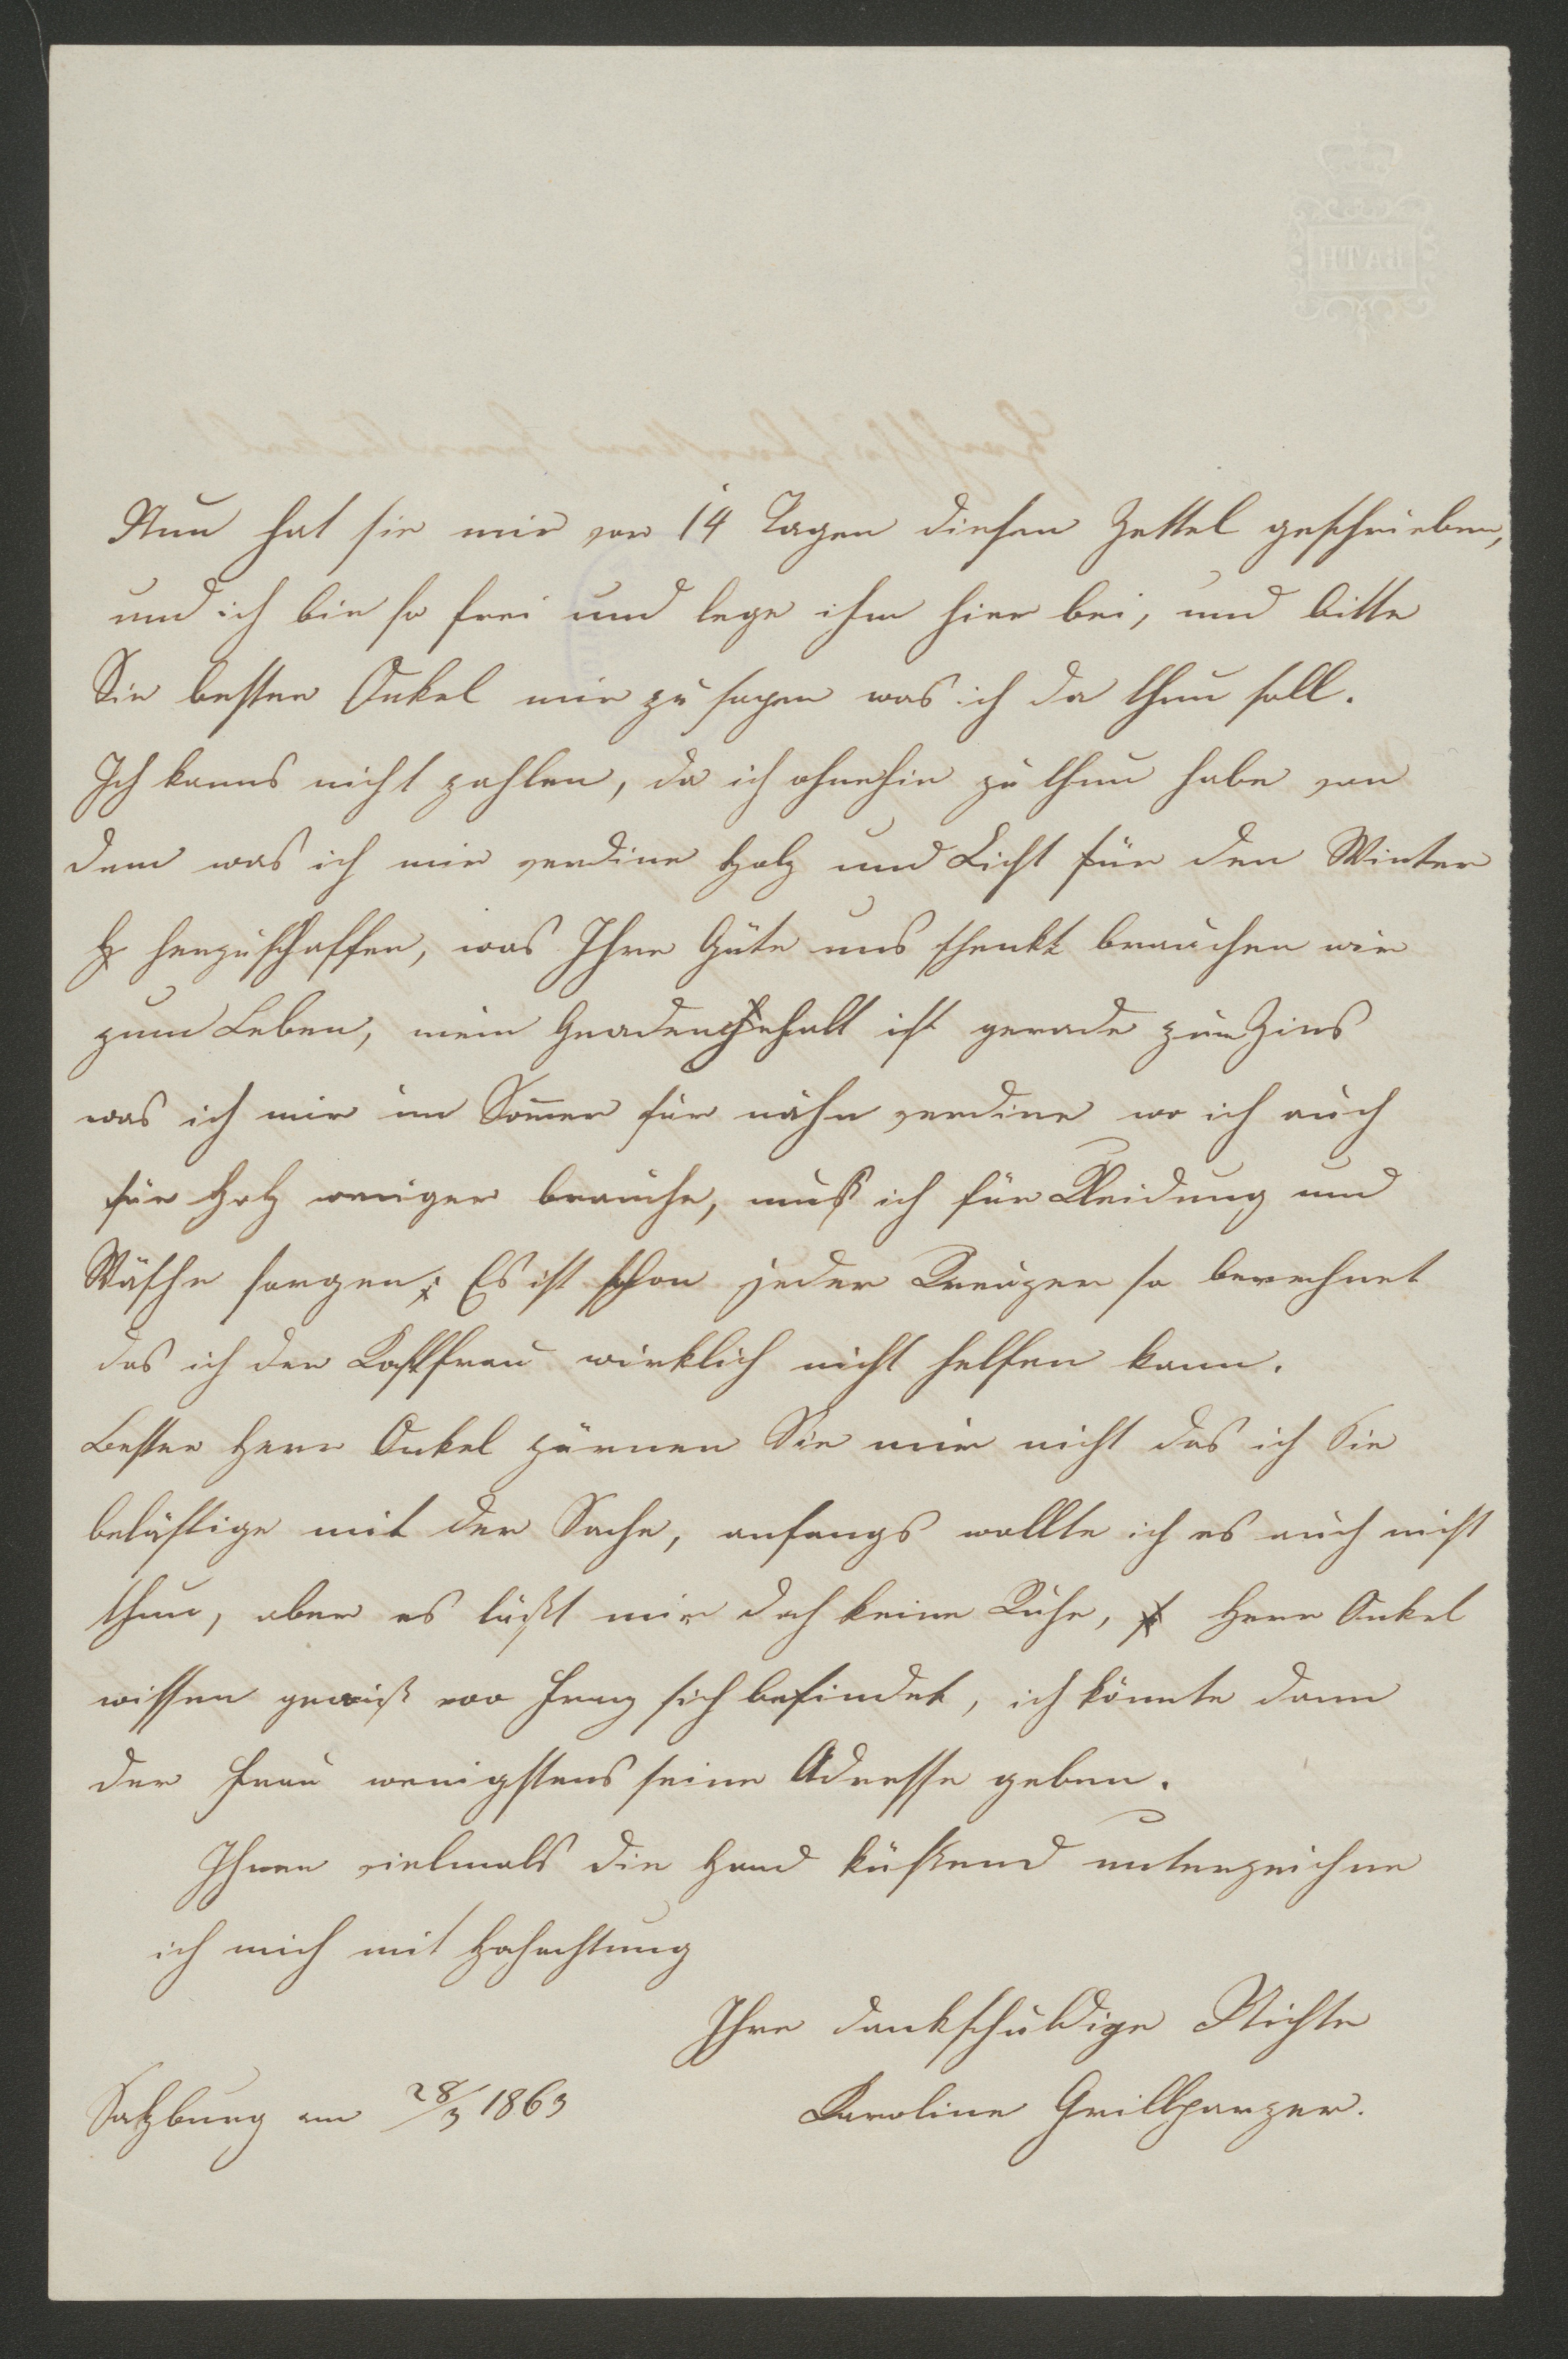 BATH
Nun hat sie mir vor 14 Tagen diesen Zettel geschrieben,
und ich bin so frei und lege ihn hier bei, und bitte
Sie bester Onkel mir zu sagen was ich da thun soll.
Ich kanns nicht zahlen, da ich ohnehin zu thun habe von
dem was ich mir verdine Holz und Licht für den Winter
herzuschaffen, was Ihre Güte uns schenkt brauchen wir
zum Leben, mein Gnadengehalt ist gerade zum Zins
was ich mir im Somer für nähn verdine wo ich auch
für Holz weniger brauche, muß ich für Kleidung und
Wäsche sorgen; Es ist schon jeder Kreuzer so berechnet
das ich der Kostfrau wirklich nicht helfen kann.
Bester Herr Onkel zürnen Sie mir nicht das ich Sie
belästige mit der Sache, anfangs wollte ich es auch nicht
thun, aber es läßt mir doch keine Ruhe, Herr Onkel
wissen gewiß wo Franz sich befindet, ich könnte dann
der Frau wenigstens seine Adresse geben.
Ihnen vielmals die Hand küßend unterzeichne
ich mich mit Hochachtung
Ihre dankschuldige Nichte
Salzburg am 28/3 1863 Karoline Grillparzer.